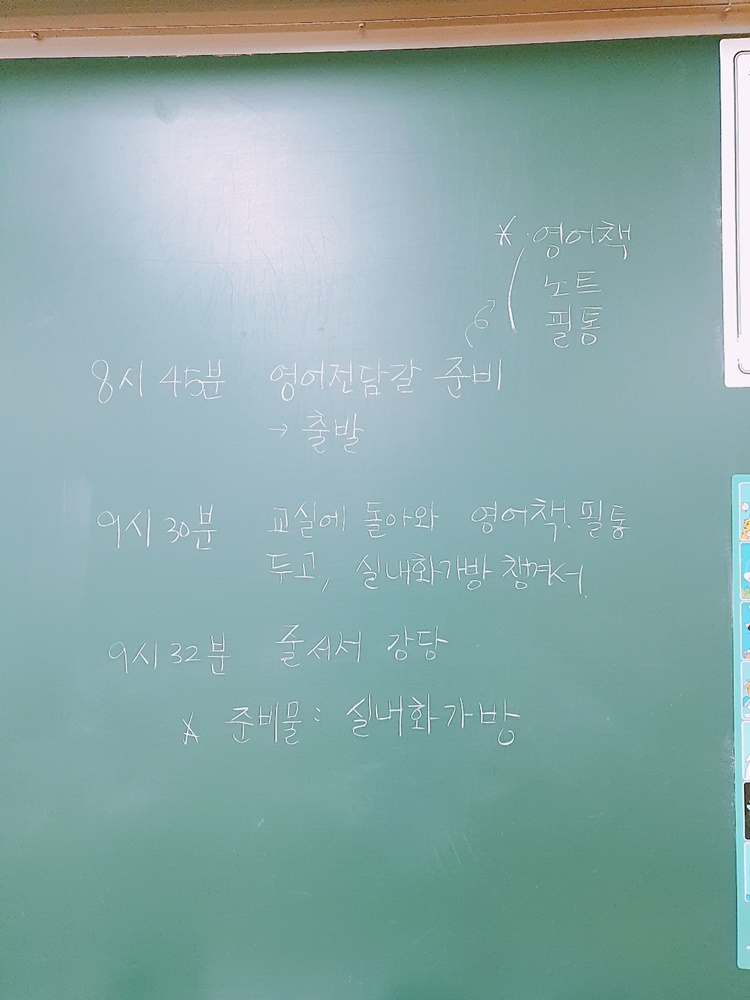 * 영어책
노트
필통
8시 45분 영어전담갈 준비
→ 출발
9시 30분 교실에 돌아와 영어책.필통
두고, 실내화가방 챙겨서
9시 32분 줄서서 강당
* 준비물: 실내화가방